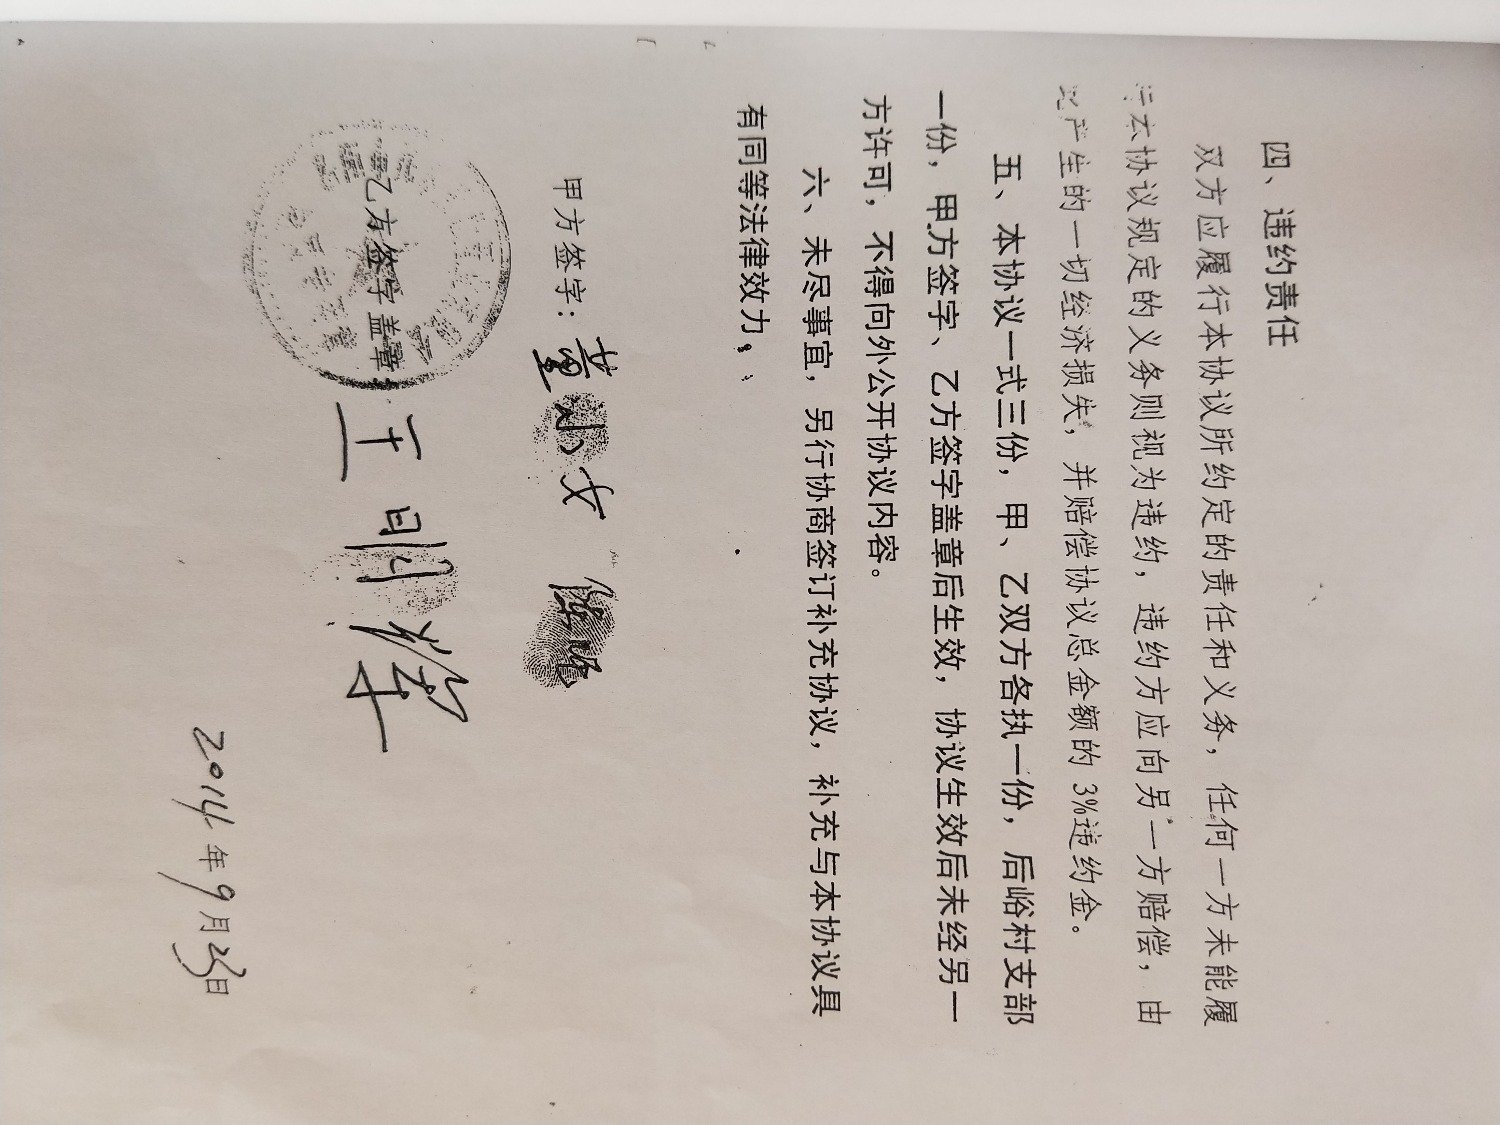 四、违约责任
双方应履行本协议所约定的责任和义务，任何一方未能履
行本协议规定的义务则视为违约，违约方应向另一方赔偿，由
此产生的一切经济损失，并赔偿协议总金额的3%违约金。
五、本协议一式三份，甲、乙双方各执一份，后峪村支部
一份，甲方签字、乙方签字盖章后生效，协议生效后未经另一
方许可，不得向外公开协议内容。
六、未尽事宜，另行协商签订补充协议，补充与本协议具
有同等法律效力，
甲方签字：董小女
乙方签字盖章：王明辉
2014年9月23日